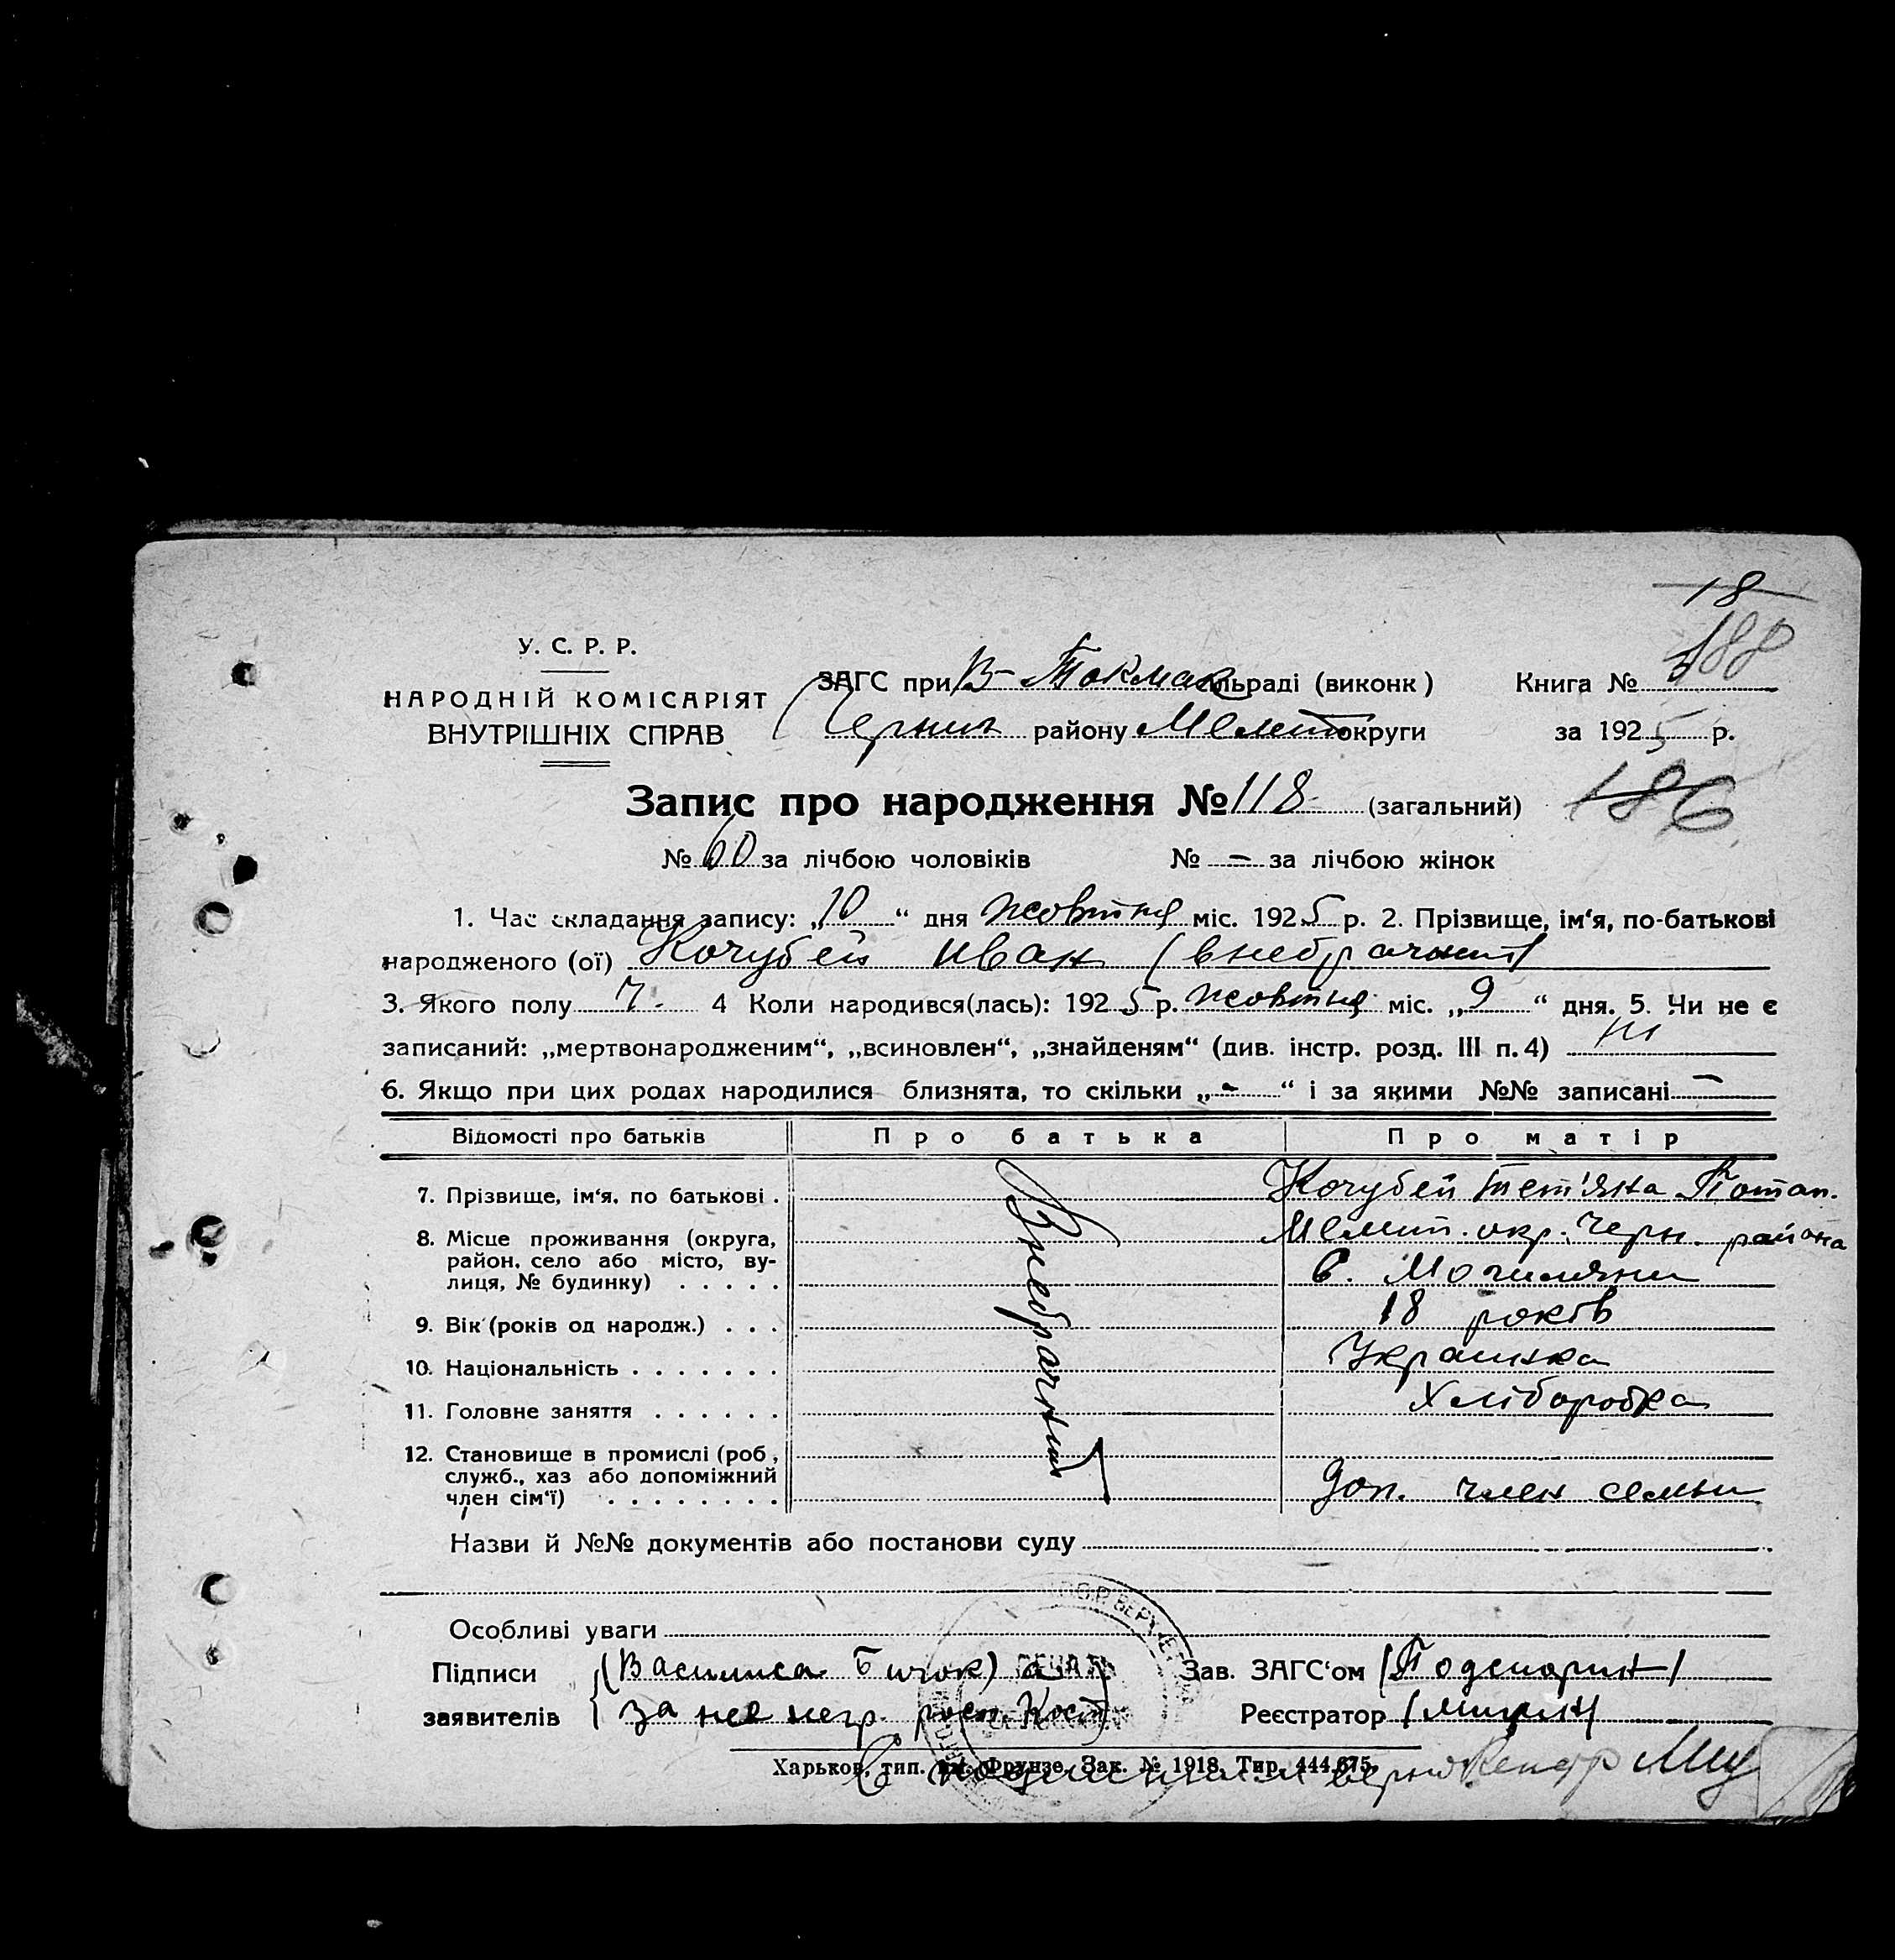 18
188
У. С. Р. Р.
НАРОДНІЙ КОМІСАРІЯТ
ВНУТРІШНІХ СПРАВ
ЗАГС при В-Токмак сільраді (виконк) Книга №
Черниг району Меліт округи за 1925 р.
Запис про народження № 118 (загальний) 186
№ 60 за лічбою чоловіків № - за лічбою жінок
1. Час складання запису: „10“ дня жовтня міс. 1925 р. 2. Прізвище, ім‘я, по-батькові
народженого (ої) Кочубей Иван (внебрачний)
3. Якого полу ч. 4 Коли народився(лась): 1925 р. жовтня міс. „9“ дня. 5. Чи не є
записаний: „мертвонародженим“, „всиновлен“, „знайденям“ (див. інстр. розд. III п. 4) ні
6. Якщо при цих родах народилися близнята, то скільки „-“ і за якими №№ записані —
Відомості про батьків Про батька Про матір
7. Прізвище, ім‘я, по батькові . Внебрачний Кочубей Тет'яна Потап.
8. Місце проживання (округа, Мелит. окр. Черн. района
район, село або місто, ву-
лиця, № будинку) . . . . . с. Могиляни
9. Вік (років од народж.) . . . 18 років
10. Національність . . . . . . . Украинка
11. Головне заняття . . . . . . Хліборобка
12. Становище в промислі (роб,
служб., хаз або допоміжний
член сім‘ї) . . . . . . . . Доп. член семьи
Назви й №№ документів або постанови суду
Особливі уваги
Підписи (Василиса Бичок) а Зав. ЗАГС‘ом (Подскорин)
заявителів за нее негр. росп. Реєстратор
Харьков, тип. ім. Фрунзе. Зак. № 1918. Тир. 444.675.
верно